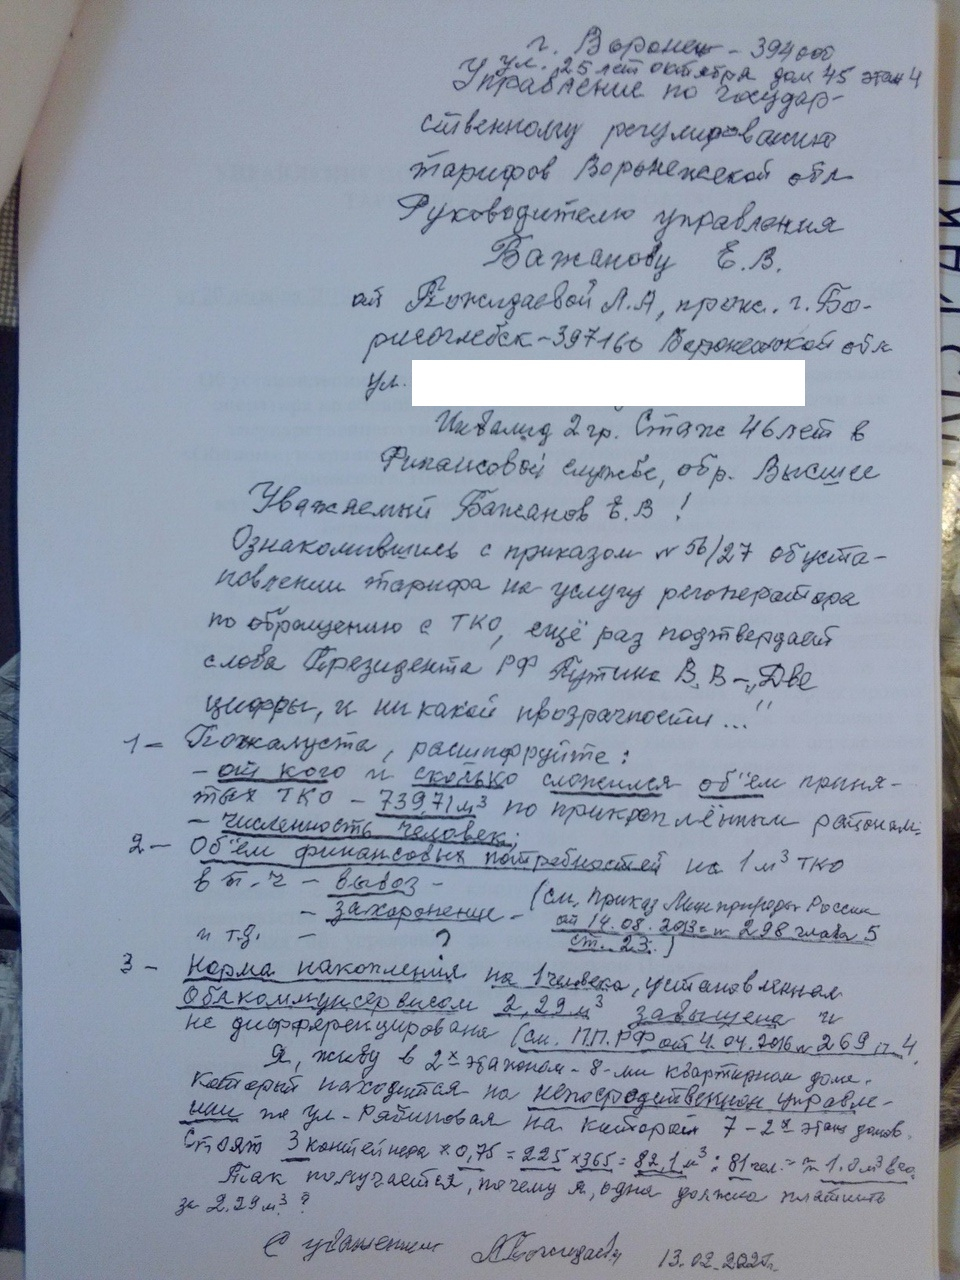 г. Воронеж - 394006
ул. 25 лет октября дом 45 этаж 4
Управление по государ-
ственному регулированию
тарифов Воронежской обл
Руководителю управления
Бажанову Е.В.
от Пожидаевой Л.А, прож. г. Бо-
рисоглебск-397160 Воронежской обл
ул.
Инвалид 2 гр. Стаж 46 лет в
Финансовой службе, обр. Высшее
Уважаемый Бажанов Е.В !
Ознакомившись с приказом № 56/27 об уста-
новлении тарифа на услугу регоператора
по обращению с ТКО, ещё раз подтвердает
слова Президента РФ Путина В.В - „Две
цифры, и никакой прозрачности..."
1 - Пожалуста, расшифруйте:
- от кого и сколько сложился об'ём приня-
тых ТКО - 739,71 м³ по прикреплённым районам;
- численность человек;
2 - Об'ем финансовых потребностей на 1 м³ ТКО
в т.ч - вывоз -
- захоронение - (см. Приказ Минприроды России
от 14.08.2013г № 298 глава 5
и т.д. - ? ст. 23.)
3 - Норма накопления на 1 человека, установленная
Облкоммунсервисом 2,29 м³ завышена и
не дифференцирована (см. П.П.РФ от 4.04.2016 № 269 п 4.
Я, живу в 2х этажном - 8-ми квартирном доме.
который находится на непосредственном управле-
нии по ул. Рябиновая на которой 7 - 2х этаж. домов.
Стоят 3 контейнера × 0,75 = 225 × 365 = 82,1 м³ : 81 чел. = 1.0 м³
Так получается, почему я, одна должна платить
за 2.29 м³ ?
С уважением Пожидаева 13.02.2020г.